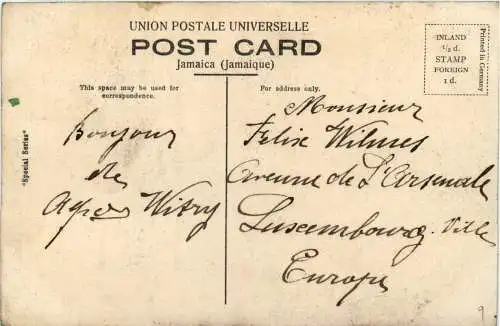 UNION POSTALE UNIVERSELLE
POST CARD
Jamaica (Jamaique)
INLAND
½ d.
STAMP
FOREIGN
1 d.
Printed in Germany
This space may be used for
correspondence.
For address only.
"Special Series"
Bonjour
de
Witry
Monsieur
Felix Wilmes
Avenue de l'Arsenale
Luxembourg. Ville
Europe
9